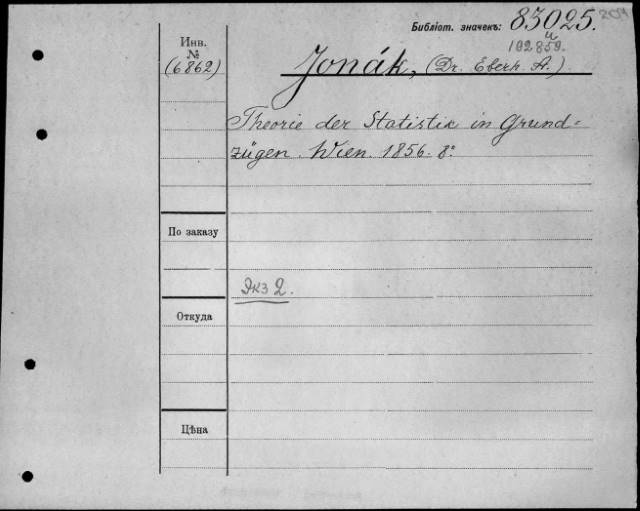 Библіот. значекъ: 83025. 204
и
102859.
Инв.
№
(6862)
Jonák, (Dr. Eberh. A.).
Theorie der Statistik in Grund=
zügen. Wien. 1856. 8º
По заказу
Экз 2.
Откуда
Цѣна